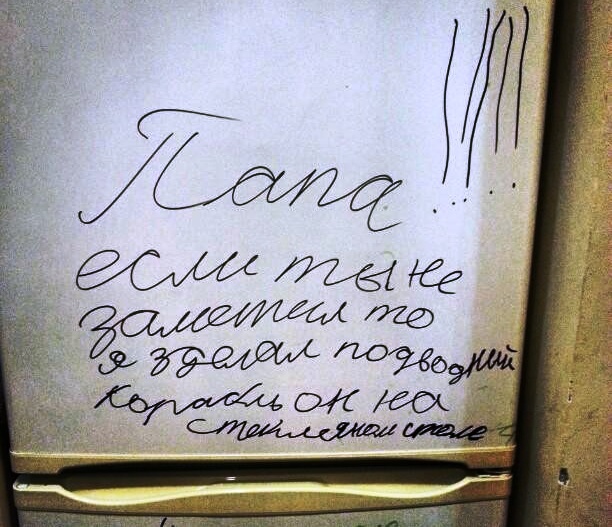 Папа !!!!!
если ты не
заметил то
я зделал подводный
корабль он на
стекляном столе